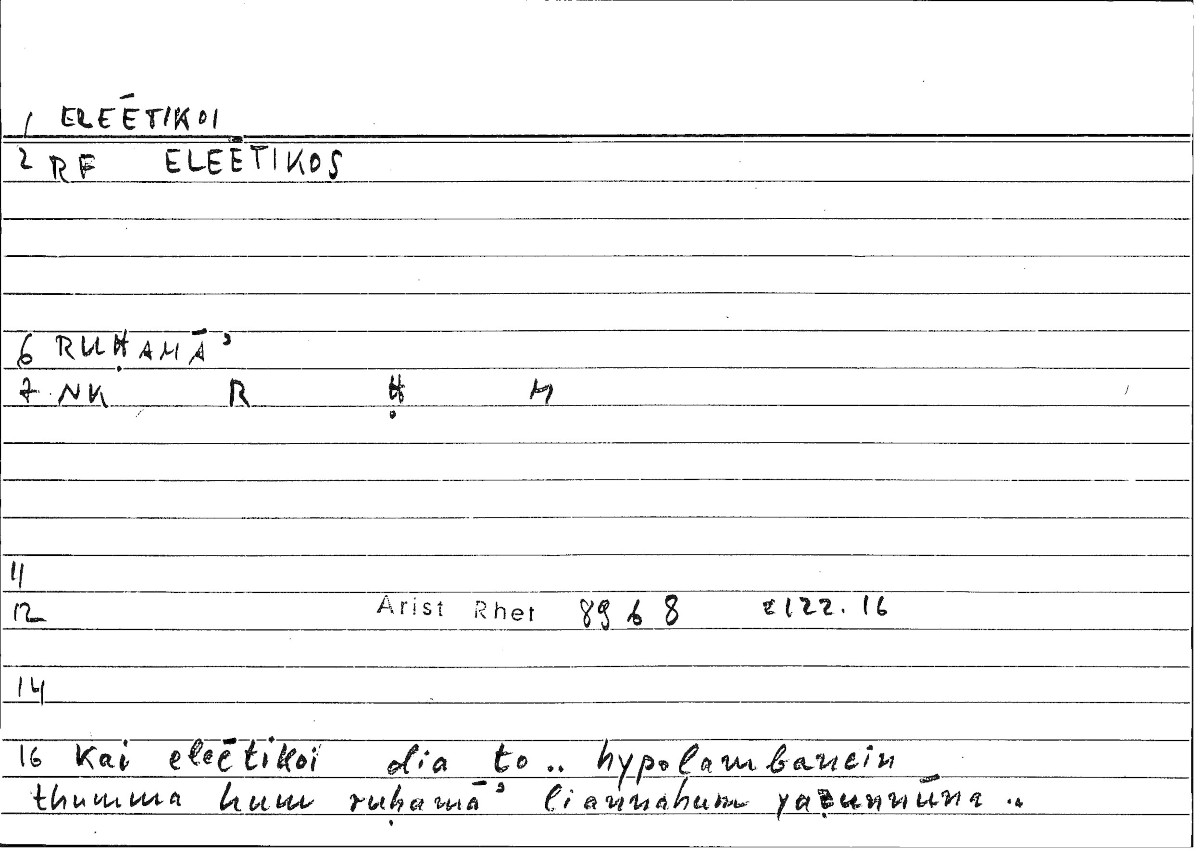 1 ELEĒTIKOI
2 RF ELEĒTIKOS
6 RUḤAMĀʾ
7 NK R Ḥ M
11
12 Arist Rhet 89 b 8 2122.16
14
16 Kai eleētikoi dia to .. hypolambanein
thumma hum ruḥamāʾ liannahum yaẓunnūna ..